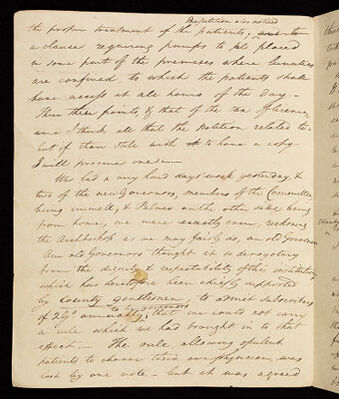 The petition also asked
the proper treatment of the patients,
a clause requiring pumps to be placed
in some part of the premises where lunatics
are confined, to which the patients shall
have access at all hours of the day. –
These three points, & that of the tax of licence,
were I think all that the petition related to –
but if thou still wish to have a copy
I will procure one. –
We had a very hard day's work yesterday, &
two of the new Governors, members of the Committee,
being unwell, & Palmer on the other side being
from home, we were exactly even, reckoning
the Archbishop as we may fairly do, an old Governor
Our old Governors thought it so derogatory
from the dignity & respectability of the institution
which has heretofore been chiefly supported
by County gentlemen to admit subscribers
to be governors
of 2 Gs. annually, that we could not carry
a rule which we had brought in to that
effect. – The rule, allowing opulent
patients to choose their own physician, was
lost by one vote – but it was agreed